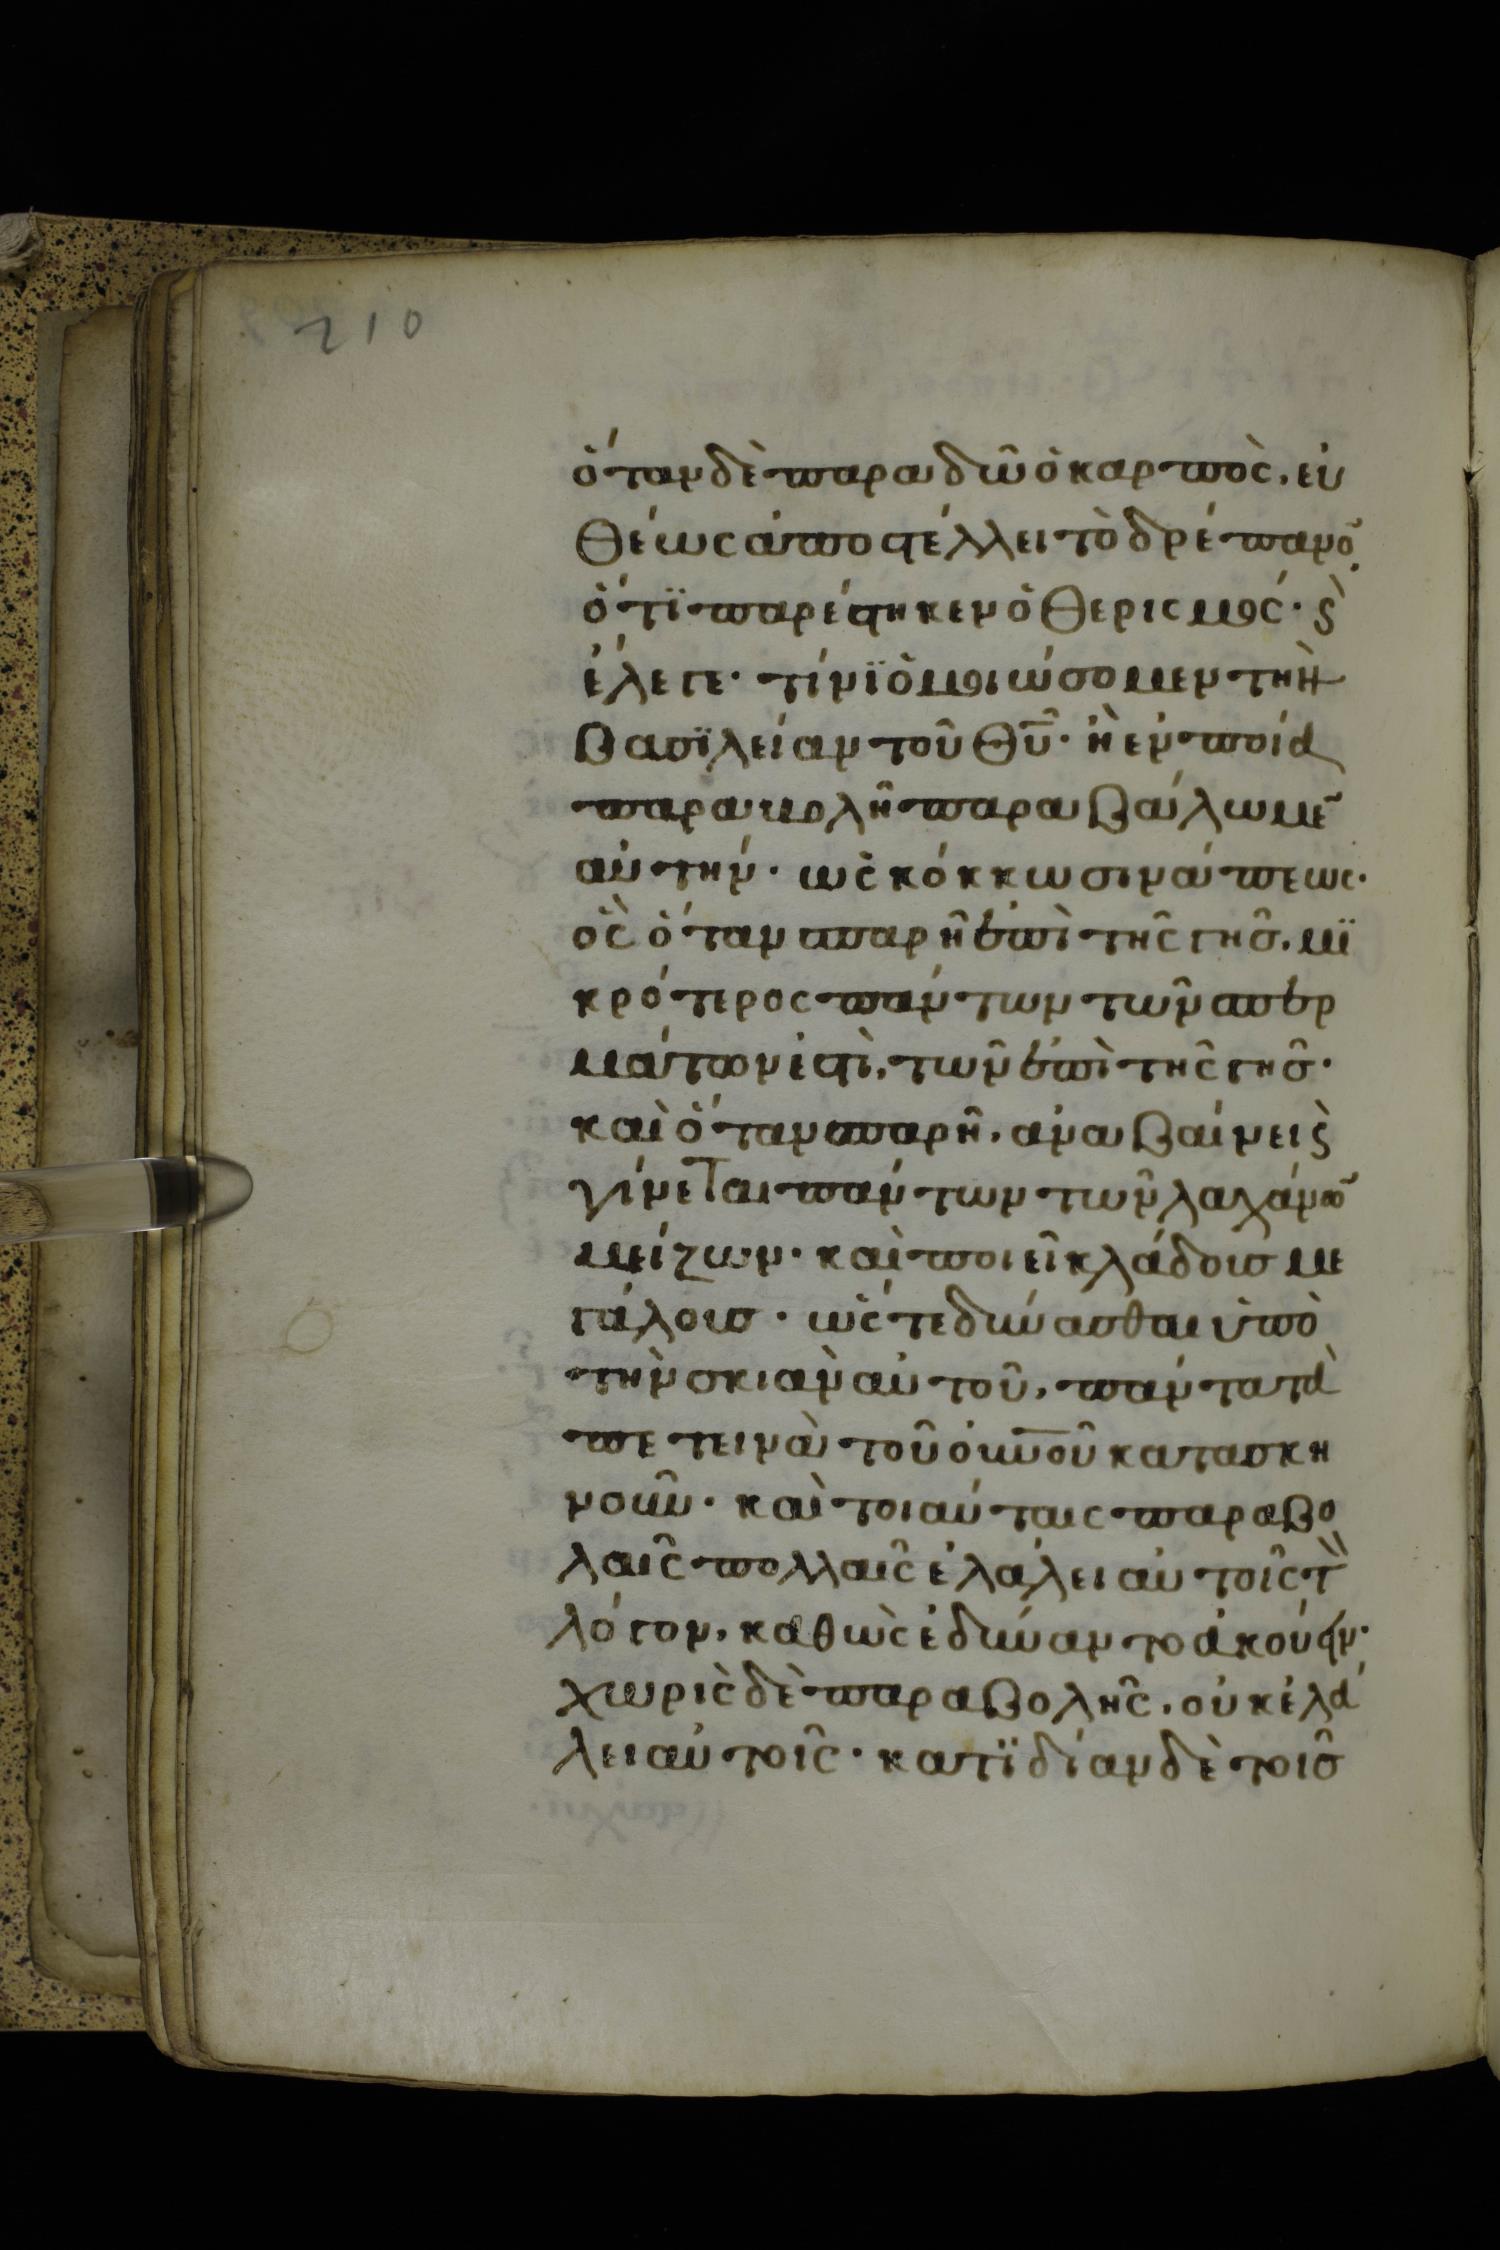 210
ὅταν δὲ παραδῶ ὁ καρπὸς, εὐ
θέως ἀποστέλλει τὸ δρέπανο̄.
ὅτϊ παρέστηκεν ὁ θερισμός· ϗ̀
ἔλεγε· τίνϊ ὁμοιώσομεν τὴν
βασϊλείαν τοῦ θ̅υ̅· ἢ ἐν ποία
παραβολῆ παραβάλωμε̄
αὐτήν· ὡς κόκκω σινάπεως·
ὃς ὅταν σπαρῆ ἐπὶ τῆς γῆσ, μϊ
κρότερος πάντων τῶν σπερ
μάτων ἐστὶ, τῶν ἐπὶ τῆς γῆσ·
καὶ ὅταν σπαρῆ, ἀναβαίνει ϗ̀
γίνεται πάντων τῶν λαχάνω̄
μείζων· καὶ ποιεῖ κλάδουσ με
γάλουσ· ὥς τε δύνασθαι ὑπὸ
τὴν σκιὰν αὐτοῦ, πάντα τὰ
πετεινὰ τοῦ ο̅υ̅ν̅ο̅ῦ κατασκη
νοῦν· καὶ τοιαύταις παραβο
λαῖς πολλαῖς ἐλάλει αὐτοῖς τ̀
λόγον, καθὼς ἐδύναντο ἀκούειν·
χωρὶς δὲ παραβολῆς, οὐκ ἐλά
λει αὐτοῖς· κατϊδίαν δὲ τοῖσ